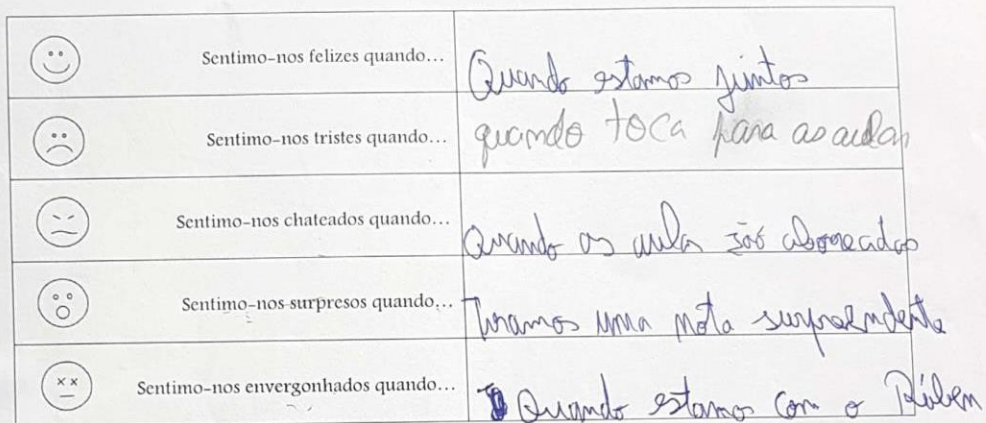 Sentimo-nos felizes quando... Quando estamos juntos
Sentimo-nos tristes quando... quando toca para as aulas
Sentimo-nos chateados quando... Quando as aulas são aborrecidas
Sentimo-nos surpresos quando... Tiramos uma nota surpreendente
Sentimo-nos envergonhados quando... Quando estamos com o Rúben